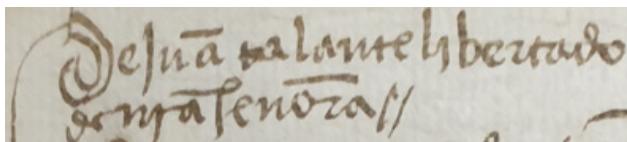 De juā talante libertado
de nr̄a señora //